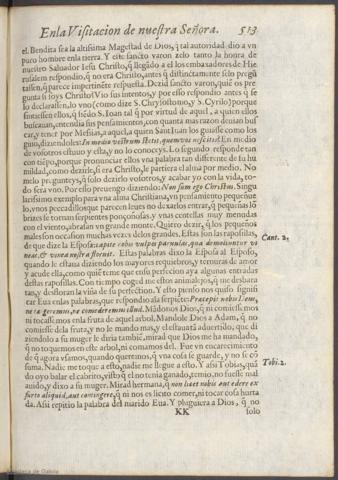 En la Visitacion de nuestra Señora. 513
el. Bendita sea la altissima Magestad de Dios, q̃ tal autoridad dio a vn
puro hombre en la tierra. Y este sancto varon zelo tanto la honra de
nuestro Saluador Iesu Christo, q̃ llegado a el los embaxadores de Hie
rusalem respondio, q̃ no era Christo, antes q̃ distinctamente solo pregũ
tassen, q̃ parece impertinẽte respuesta. Dezid sancto varon, que os pre
gunta si soys Christo? Vio sus intentos, y por esso respondio antes q̃ se
lo declarassen, lo vno (como dize S. Chrysostomo, y S. Cyrilo) porque
sintiessen ellos, q̃ siẽdo S. Ioan tal q̃ por virtud de aquel, a quien ellos
buscauan, entendia sus pensamientos, con quanta mas razon deuian bus
car, y tener por Messias, a aquel, a quien Sant Iuan los guiasse como los
guio, diziendoles: In medio vestrum stetit, quem vos nescitis? En medio
de vosotros estuuo y esta, y no lo conoceys. Lo segundo responde tan
con tiẽpo, porque pronunciar ellos vna palabra tan diferente de su hu
mildad, como dezirle, si era Christo, le partiera el alma por medio. No
me lo pregunteys, q̃ solo dezirlo vosotros, y acabar yo con la vida, to-
do sera vno. Por esso preuengo diziendo: Non sum ego Christus. Singu
larissimo exemplo para vna alma Christiana, vn pensamiento pequeñue
lo, vnos peccadillos que parecen leues no dexarlos entrar, q̃ pequeñas lõ
brizes se tornan serpientes ponçoñosas, y vnas centellas muy menudas
con el viento, abrasan vn grande monte. Quiero dezir, q̃ los pequeños
males son occasion muchas vezes de los grandes. Estas son las raposillas,
de que dize la Esposa: capite nobis vulpes paruulas, quæ demoliuntur vi
neas, &c vinea nostra floruit. Estas palabras dixo la Esposa al Esposo,
quando le estaua diziendo los mayores requiebros, y ternuras de amor
y acude ella, como quiẽ teme que en su perfeccion aya algunas entradas
destas raposillas. Con tiempo coged me estos animalejos, q̃ me desbara
tan, y desfloran la viña de su perfection. Y esto pienso nos quiso signifi
car Eua en las palabras, que respondio ala serpiẽte: Præcepit nobis Deus,
ne tangeremus, ne comederemus illud. Mãdonos Dios, q̃ ni comiessemos
ni tocassemos en la fruta de aquel arbol. Mandole Dios a Adam, q̃ no
comiesse dela fruta, y no le mando mas, y el estaua tã aduertido, que di
ziendolo a su muger le diria tambiẽ, mirad que Dios me ha mandado,
q̃ no toquemos en este arbol, ni comamos del. Fue vn encarecimiento
de q̃ agora vsamos, quando queremos, q̃ vna cosa se guarde, y no se cõ
suma. Nadie me toque a esto, nadie me llegue a esto. Y assi Tobias, quã
do oyo balar el cabrito, visto q̃ el no tenia ganado, temio, no fuesse mal
auido, y dixo a su muger. Mirad hermana, q̃ non licet nobis aut edere ex
furto aliquid, aut contingere, q̃ ni nos es licito comer, ni tocar cosa hurta
da. Assi repitio la palabra del marido Eua. Y pluguiera a Dios, q̃ no
KK solo
Cant. 2.
Tobi. 2.